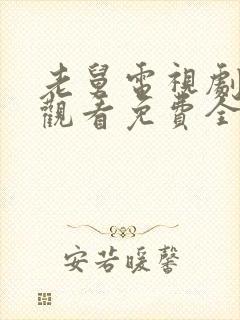 老舅電視劇
觀看免費全
安若暖馨